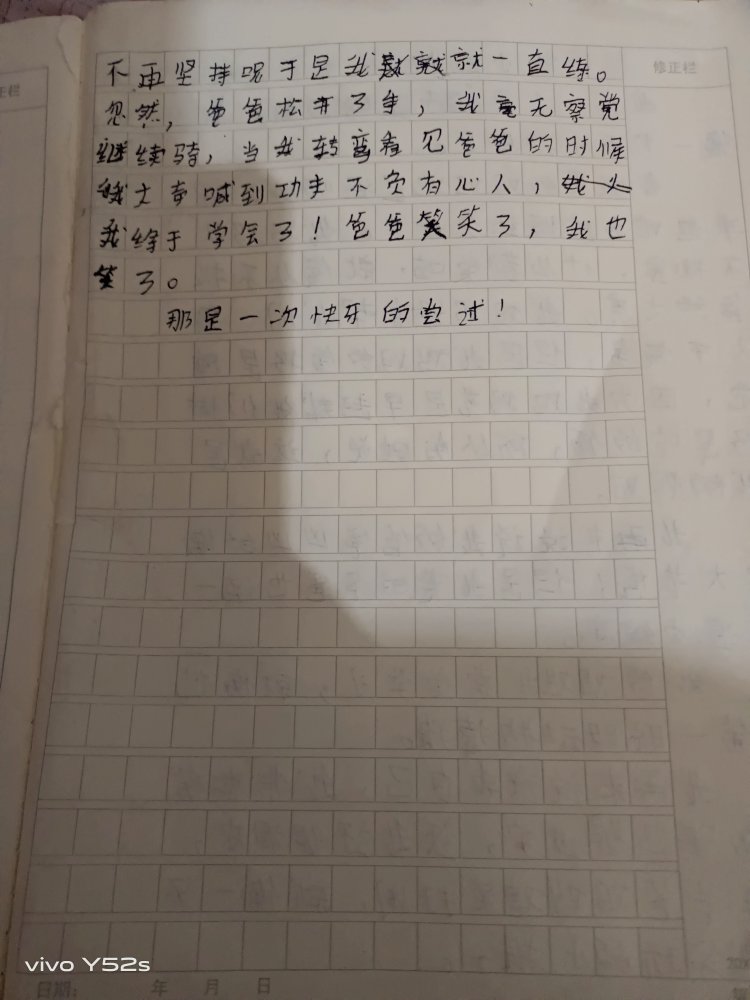 不再坚持呢于是我就一直练。
忽然，爸爸松开了手，我毫无察觉
继续骑，当我转弯看见爸爸的时候
我大声喊到功夫不负有心人，
我终于学会了！爸爸笑了，我也
笑了。
那是一次快乐的尝试！
修正栏
正栏
vivo Y52s
日期： 年 月 日